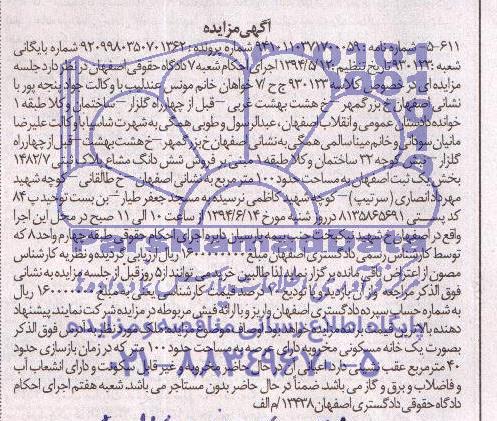 آگهی مزایده
۵-۶۱۱ شماره نامه : ۹۴۱۰۱۱۰۳۷۱۷۰۰۰۵۹ شماره پرونده : ۹۲۰۹۹۸۰۳۵۰۷۰۱۳۶۲ شماره بایگانی
شعبه : ۹۳۰۱۲۳ تاریخ تنظیم : ۱۳۹۴/۵/۱۲ اجرای احکام شعبه ۷ دادگاه حقوقی اصفهان در نظر دارد جلسه
مزایده ای در خصوص کلاسه ۹۳۰۱۲۳ ج ح /۷ خواهان خانم مونس عندلیب با وکالت جواد پنجه پور با
نشانی اصفهان خ بزرگمهر - خ هشت بهشت غربی - قبل از چهارراه گلزار - ساختمان وکلا طبقه ۱
خوانده دادستان عمومی و انقلاب اصفهان ، عبدالرسول و طوبی همگی به شهرت شاسا با وکالت علیرضا
مانیان سودانی و خانم مینا سالمی همگی به نشانی اصفهان خ بزرگمهر - خ هشت بهشت - قبل از چهارراه
گلزار - نبش کوچه ۳۲ ساختمان وکلا طبقه ۱ مبنی بر فروش شش دانگ مشاع پلاک ثبتی ۱۴۸۲/۷
بخش یک ثبت اصفهان به مساحت حدود ۱۰۰ متر مربع به نشانی اصفهان - خ طالقانی - کوچه شهید
مهرداد انصاری (سرتیپ) - کوچه شهید کاظمی نرسیده به مسجد جعفر طیار - بن بست توحید پ ۸۴
کد پستی ۸۱۳۵۸۶۵۶۹۱ در روز شنبه مورخ ۱۳۹۴/۶/۱۴ از ساعت ۱۰ الی ۱۱ صبح در محل این اجرا
واقع در اصفهان خ شهید نیکبخت جنب بیمه پارسیان دایره اجرای احکام حقوقی طبقه چهارم واحد ۸ که
توسط کارشناس رسمی دادگستری اصفهان مبلغ ریال ارزیابی گردیده و نظریه کارشناس
مصون از اعتراض باقی مانده برگزار نماید لذا طالبین خرید می توانند ۵ روز قبل از جلسه مزایده به نشانی
فوق الذکر مراجعه و از آن بازدید و با تودیع ۱۰ درصد قیمت کارشناسی یعنی به مبلغ ریال
به شماره حساب سپرده دادگستری اصفهان واریز و با ارائه فیش مربوطه در مزایده شرکت نمایند. پیشنهاد
دهنده بالاترین قیمت برنده مزایده خواهد بود اوصاف موضوع مزایده : ملک مورد نظر به آدرس فوق الذکر
بصورت یک خانه مسکونی مخروبه دارای عرصه به مساحت حدود ۱۰۰ متر که در زمان بازسازی حدود
۴۰ متر مربع عقب نشینی دارد اعیانی آن در حال حاضر مخروبه و غیر قابل سکونت و دارای انشعاب آب
و فاضلاب و برق و گاز می باشد. ضمنا در حال حاضر بدون مستاجر می باشد شعبه هفتم اجرای احکام
دادگاه حقوقی دادگستری اصفهان ۱۳۴۳۸/م الف
ParsNamadData
مرکز فرآوری اطلاعات پارس نماد داده ها
پایگاه اطلاع رسانی مناقصه و مزایده
۰۲۱-۸۸۳۴۹۶۷۰-۵